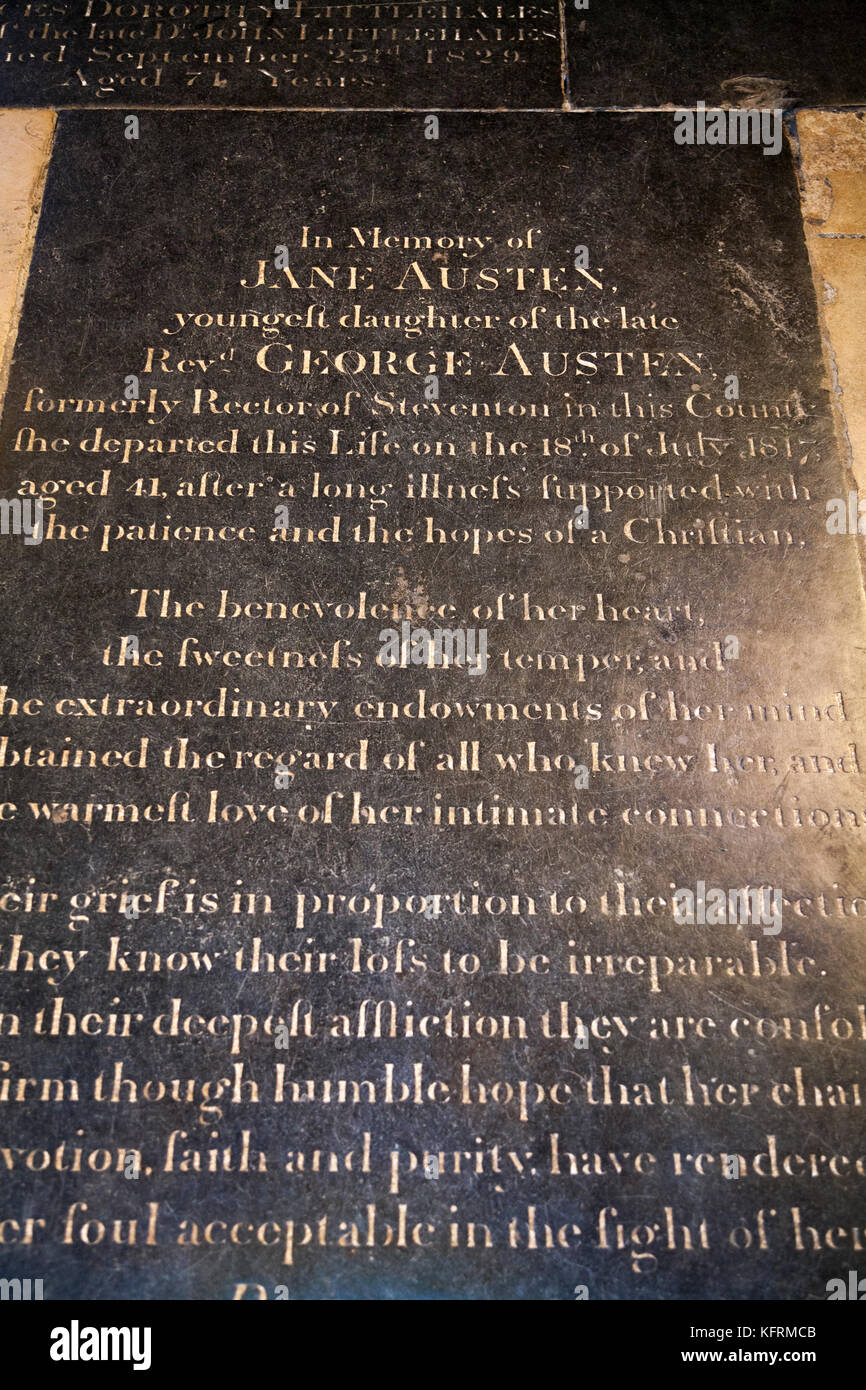 ES DOROTHY LITTLEHALES
f the late Dr. JOHN LITTLEHALES
ied September 23rd 1829.
Aged 74 Years.
In Memory of
JANE AUSTEN,
youngeſt daughter of the late
Revd. GEORGE AUSTEN,
formerly Rector of Steventon in this County
ſhe departed this Life on the 18th. of July 1817,
aged 41, after a long illneſs ſupported with
the patience and the hopes of a Chriſtian.
The benevolence of her heart,
the ſweetneſs of her temper, and
he extraordinary endowments of her mind
btained the regard of all who knew her, and
e warmeſt love of her intimate connections
eir grief is in proportion to their affectio
they know their loſs to be irreparable.
n their deepeſt affliction they are conſol
firm though humble hope that her char
votion, faith and purity, have rendere
er ſoul acceptable in the ſight of her
a
alamy
alamy stock photo
Image ID: KFRMCB
www.alamy.com